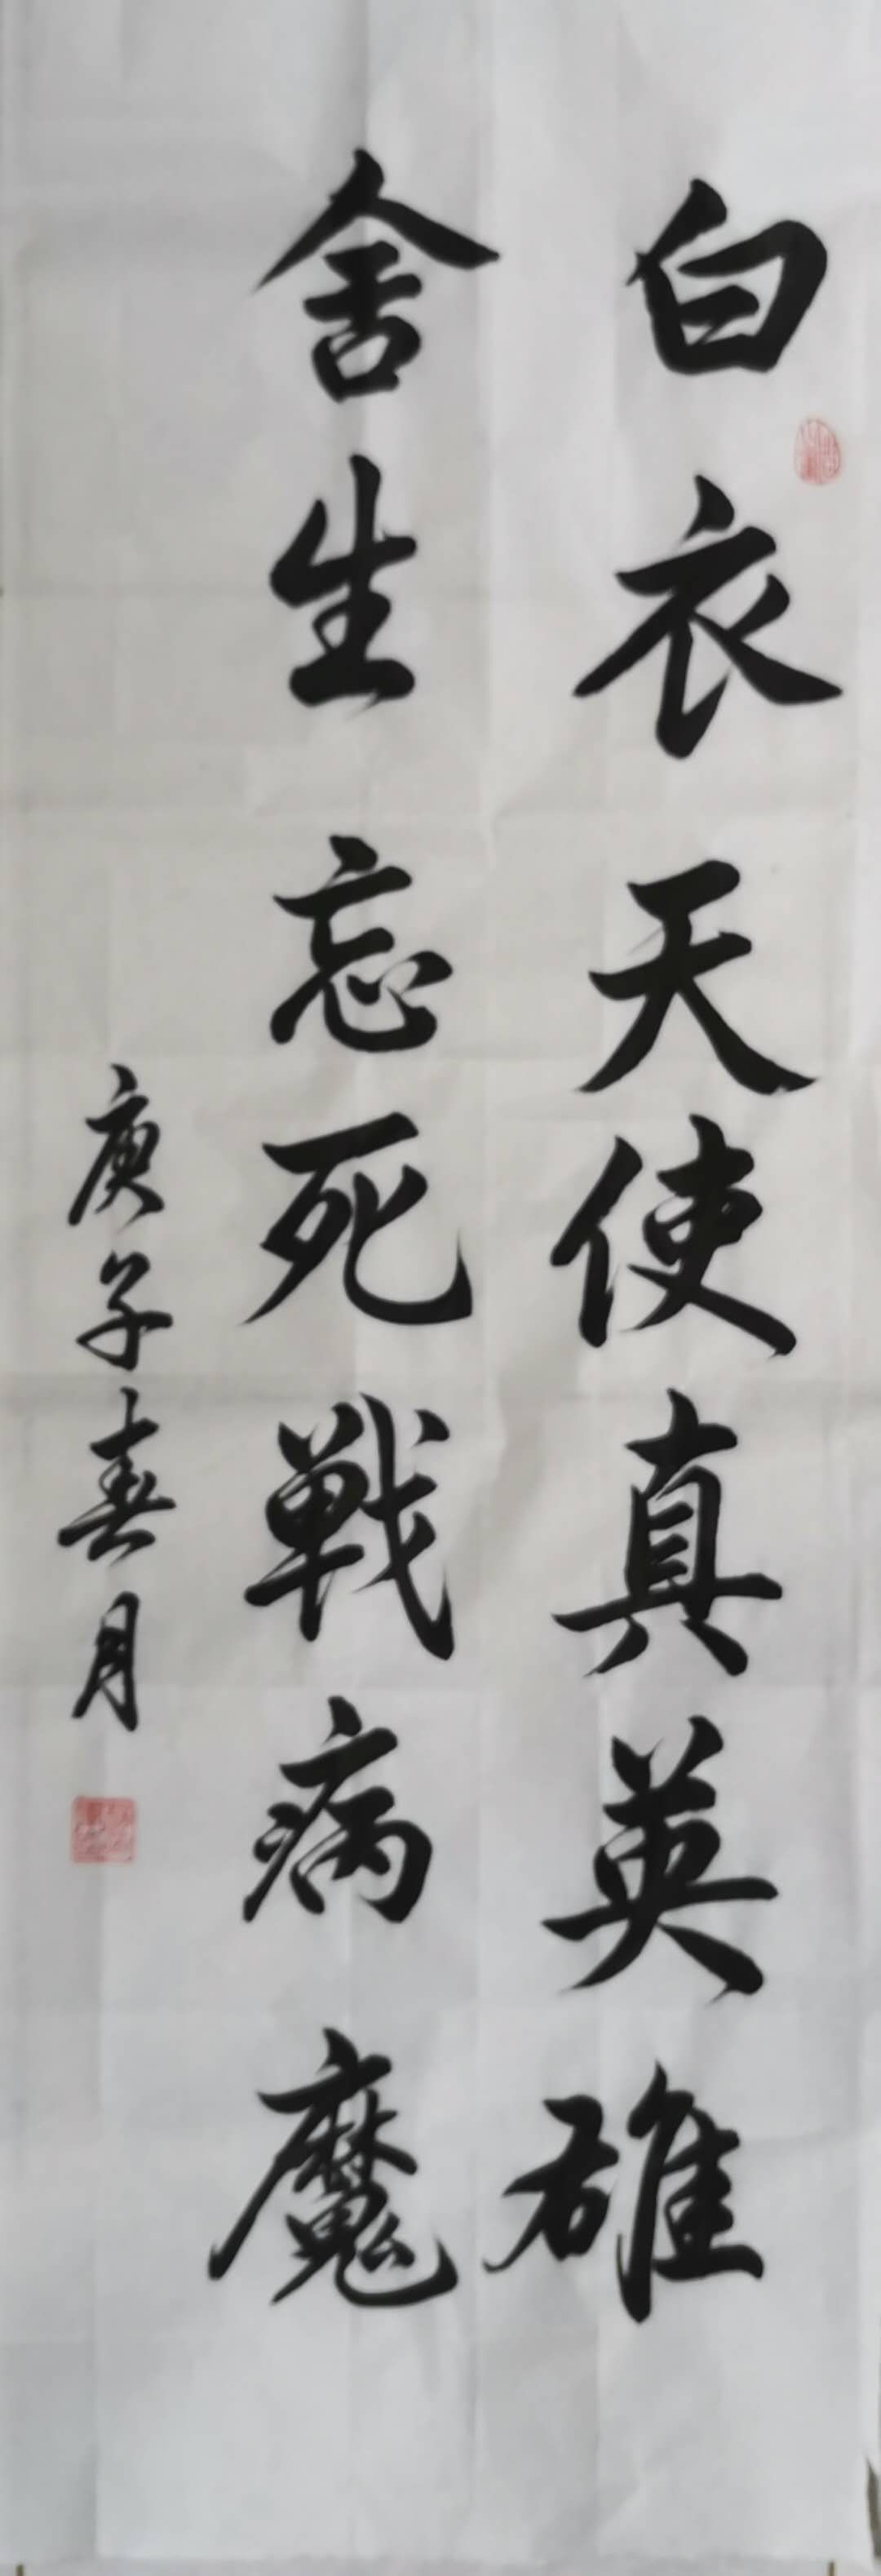 白衣天使真英雄
舍生忘死戦病魔
庚子春月